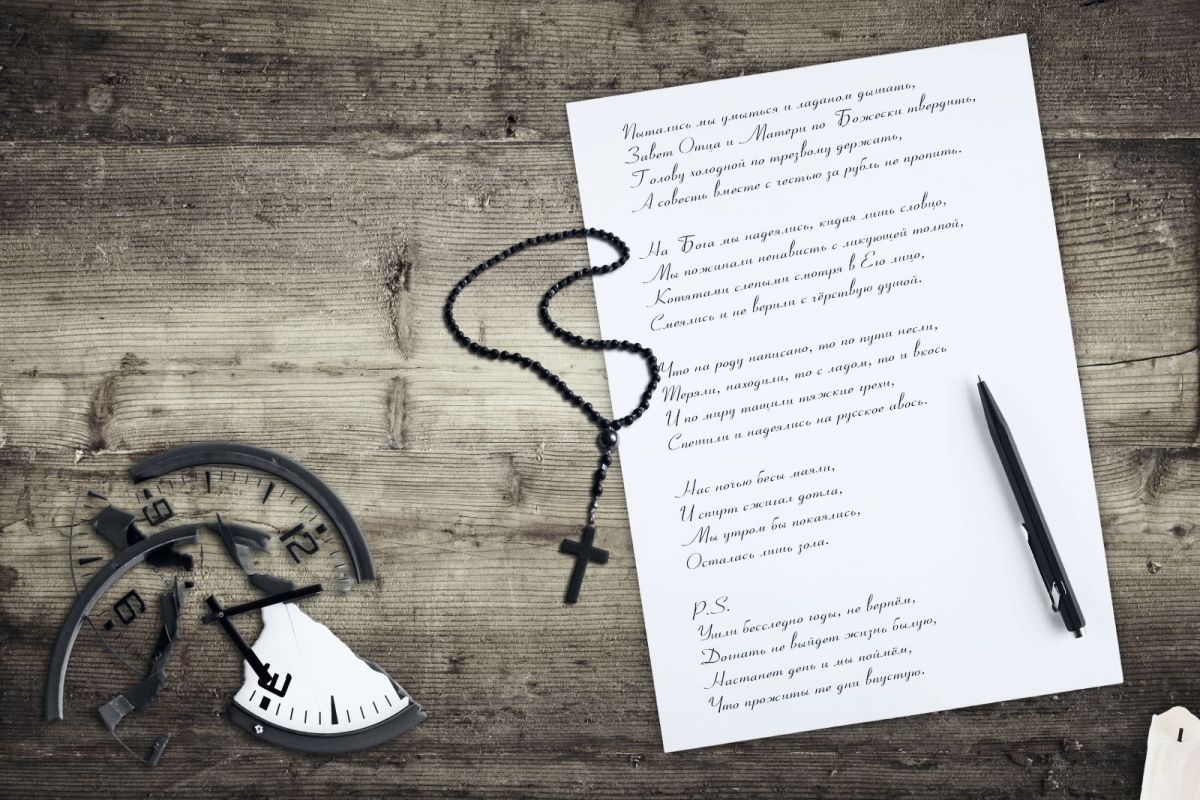 Пытались мы умыться и ладаном дышать,
Завет Отца и Матери по Божески твердить,
Голову холодной по трезвому держать,
А совесть вместе с честью за рубль не пропить.
На Бога мы надеялись, кидая лишь словцо,
Мы пожинали ненависть с ликующей толпой,
Котятами слепыми смотря в Его лицо,
Смеялись и не верили с чёрствую душой.
Что на роду написано, то по пути несли,
Теряли, находили, то с ладом, то и вкось
И по миру тащили тяжкие грехи,
Спешили и надеялись на русское авось.
Нас ночью бесы маяли,
И спирт сжигал дотла,
Мы утром бы покаялись,
Осталась лишь зола.
P.S.
Ушли бесследно годы, не вернём,
Догнать не выйдет жизнь былую,
Настанет день и мы поймём,
Что прожиты те дни впустую.
9
12
6
3